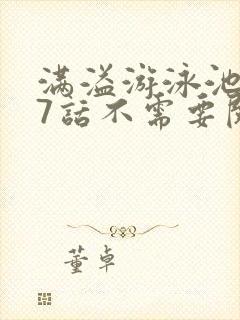 满溢游泳池
7話不需要
董卓